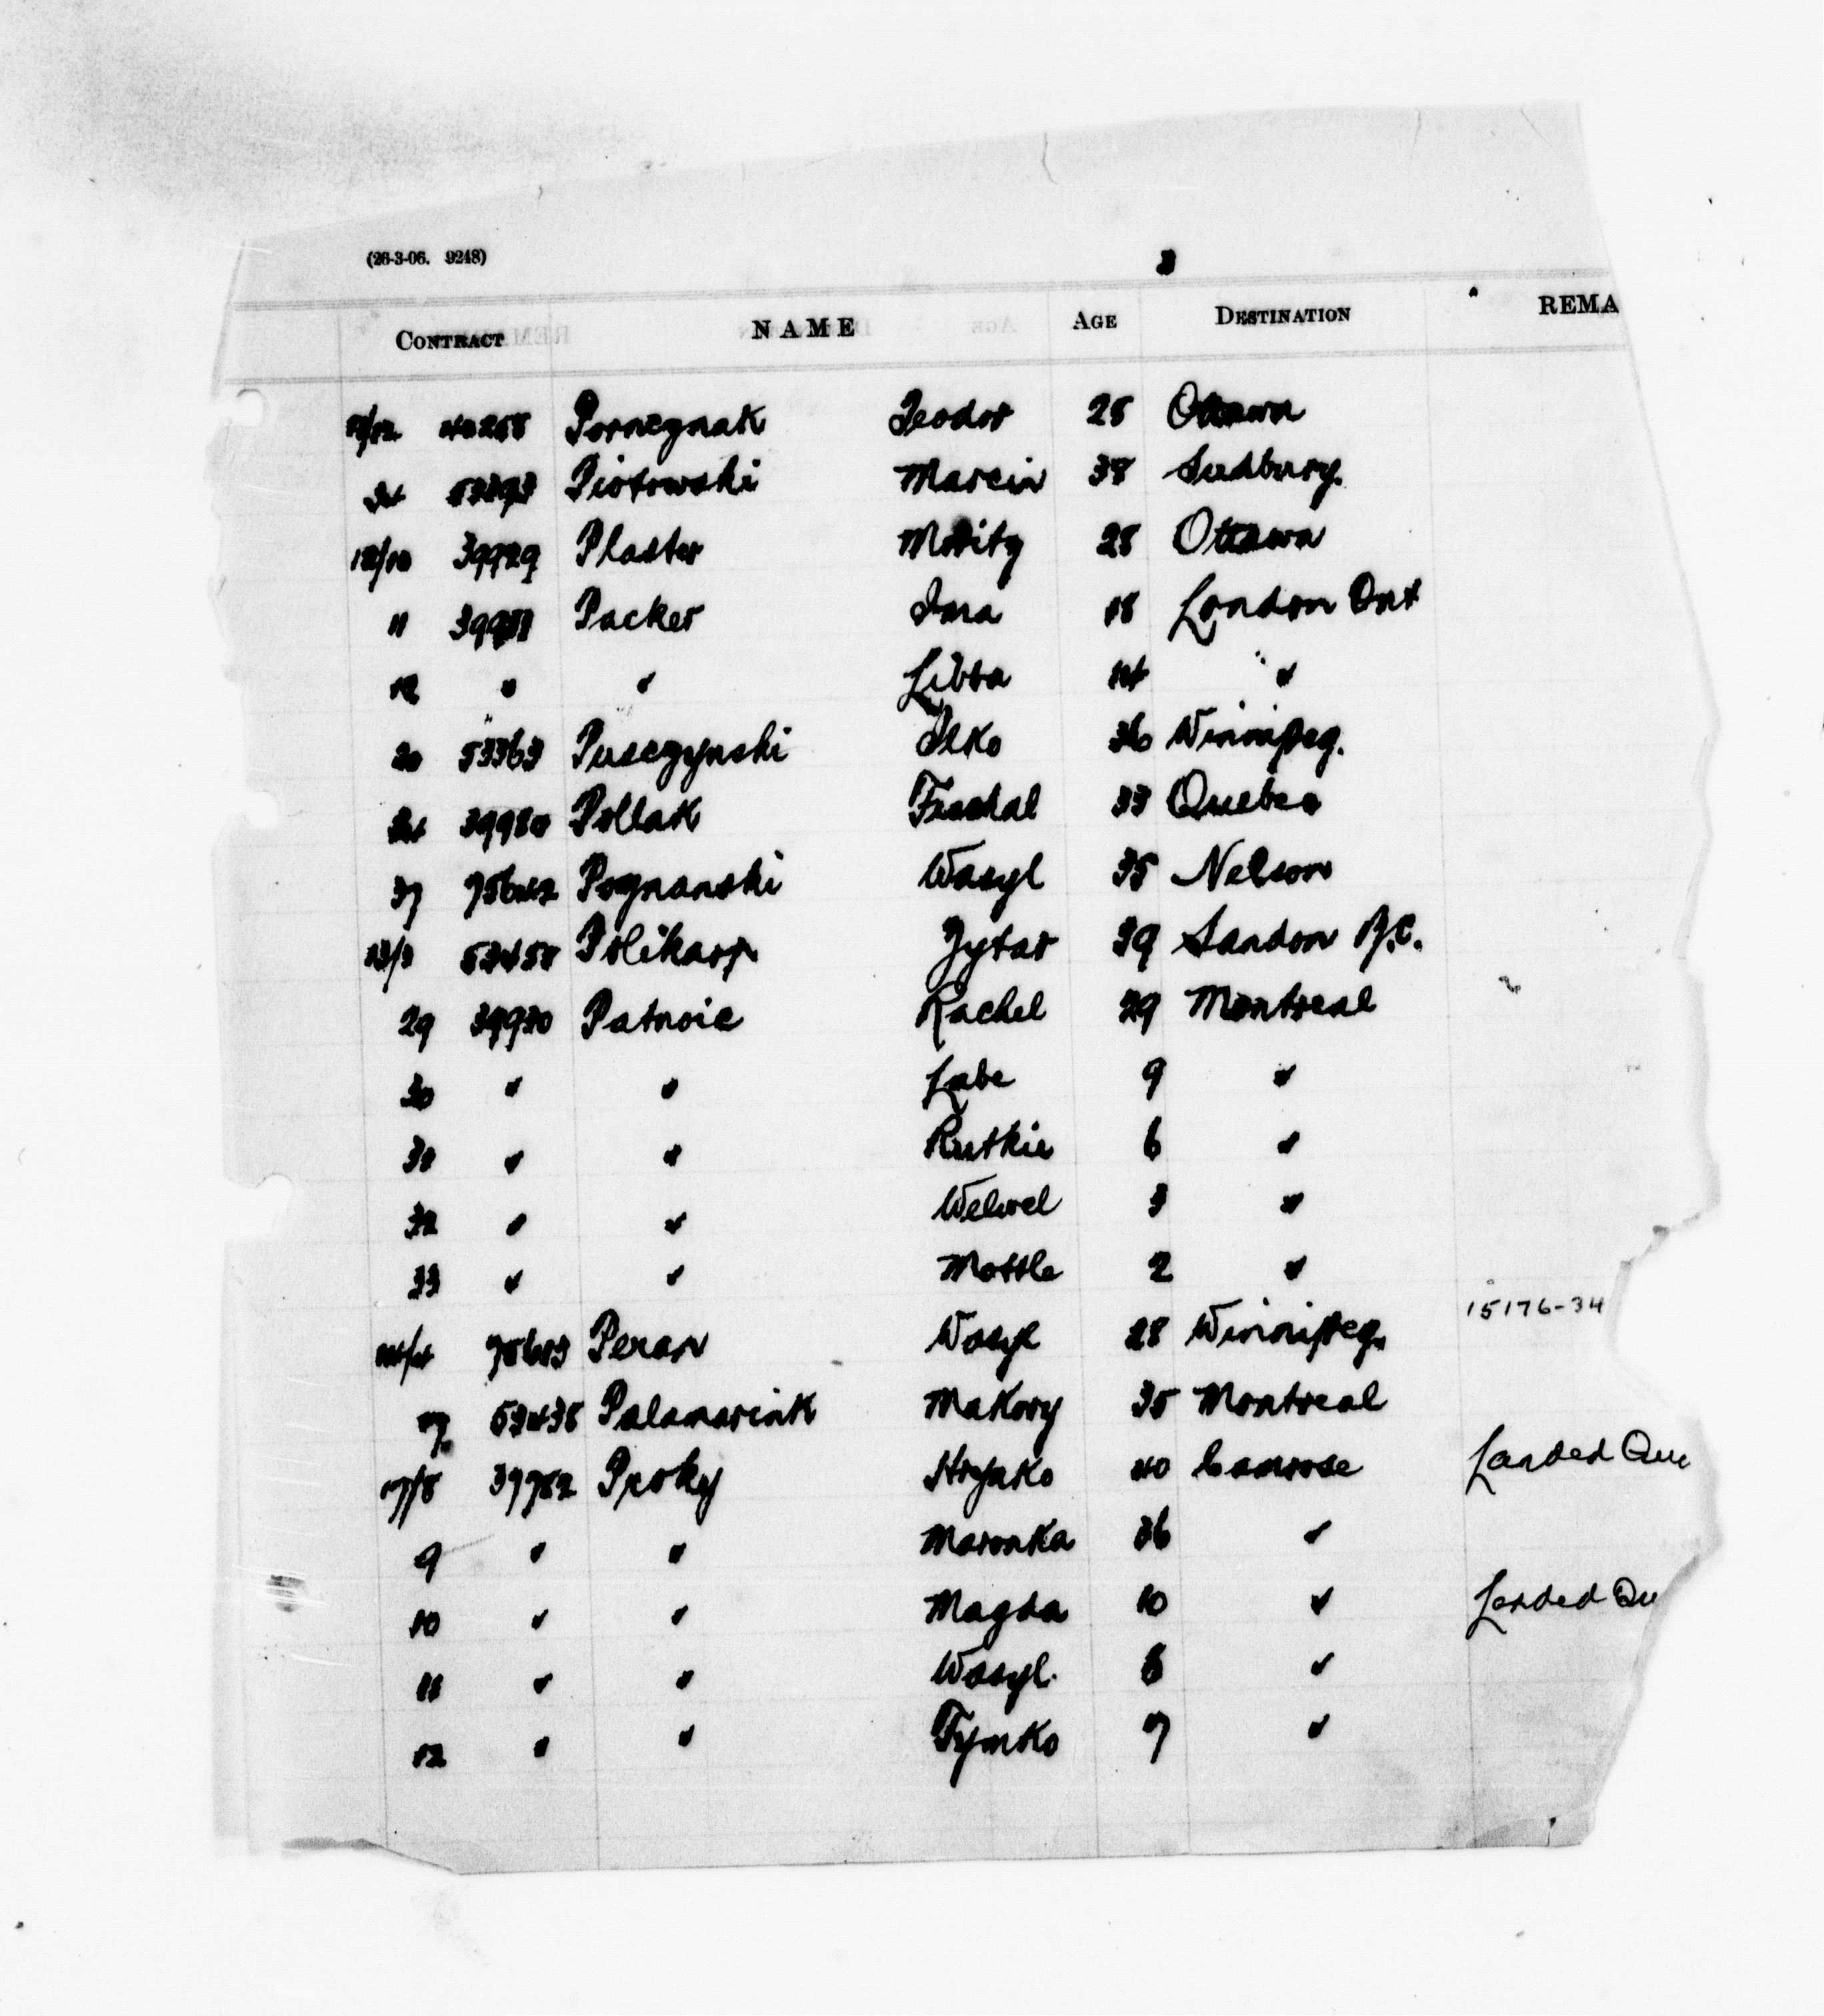 (26-3-06. 9248) 3
CONTRACT NAME AGE DESTINATION REMA
Porncznak Teodor 28 Ottawa
53393 Piotrowski Marcin 38 Sudbury.
12/10 39929 Plaster Moritz 28 Ottawa
11 Packer 18 London Ont
12 " " Libba 14 "
20 53363 Pusczynski Ilko 36 Winnipeg.
39980 Pollak Fischal 33 Quebec
37 75642 Poznanski Wasyl 35 Nelson
13/3 53458 Polikarp Zytar 39 Sandon B.C.
29 39930 Patnoic Rachel 29 Montreal
30 " " Labe 9 "
31 " " Rutkie 6 "
32 " " Welwel 3 "
33 " " Mottle 2 "
15176-34
Peran Wasyl 28 Winnipeg.
53438 Palamariuk Makory 35 Montreal
17/8 39782 Proky Hrynko 40 Camrose Landed Que
9 " " Maronka 36 "
10 " " Magda 10 " Landed Qu
11 " " Wasyl. 8 "
12 " " Tymko 7 "